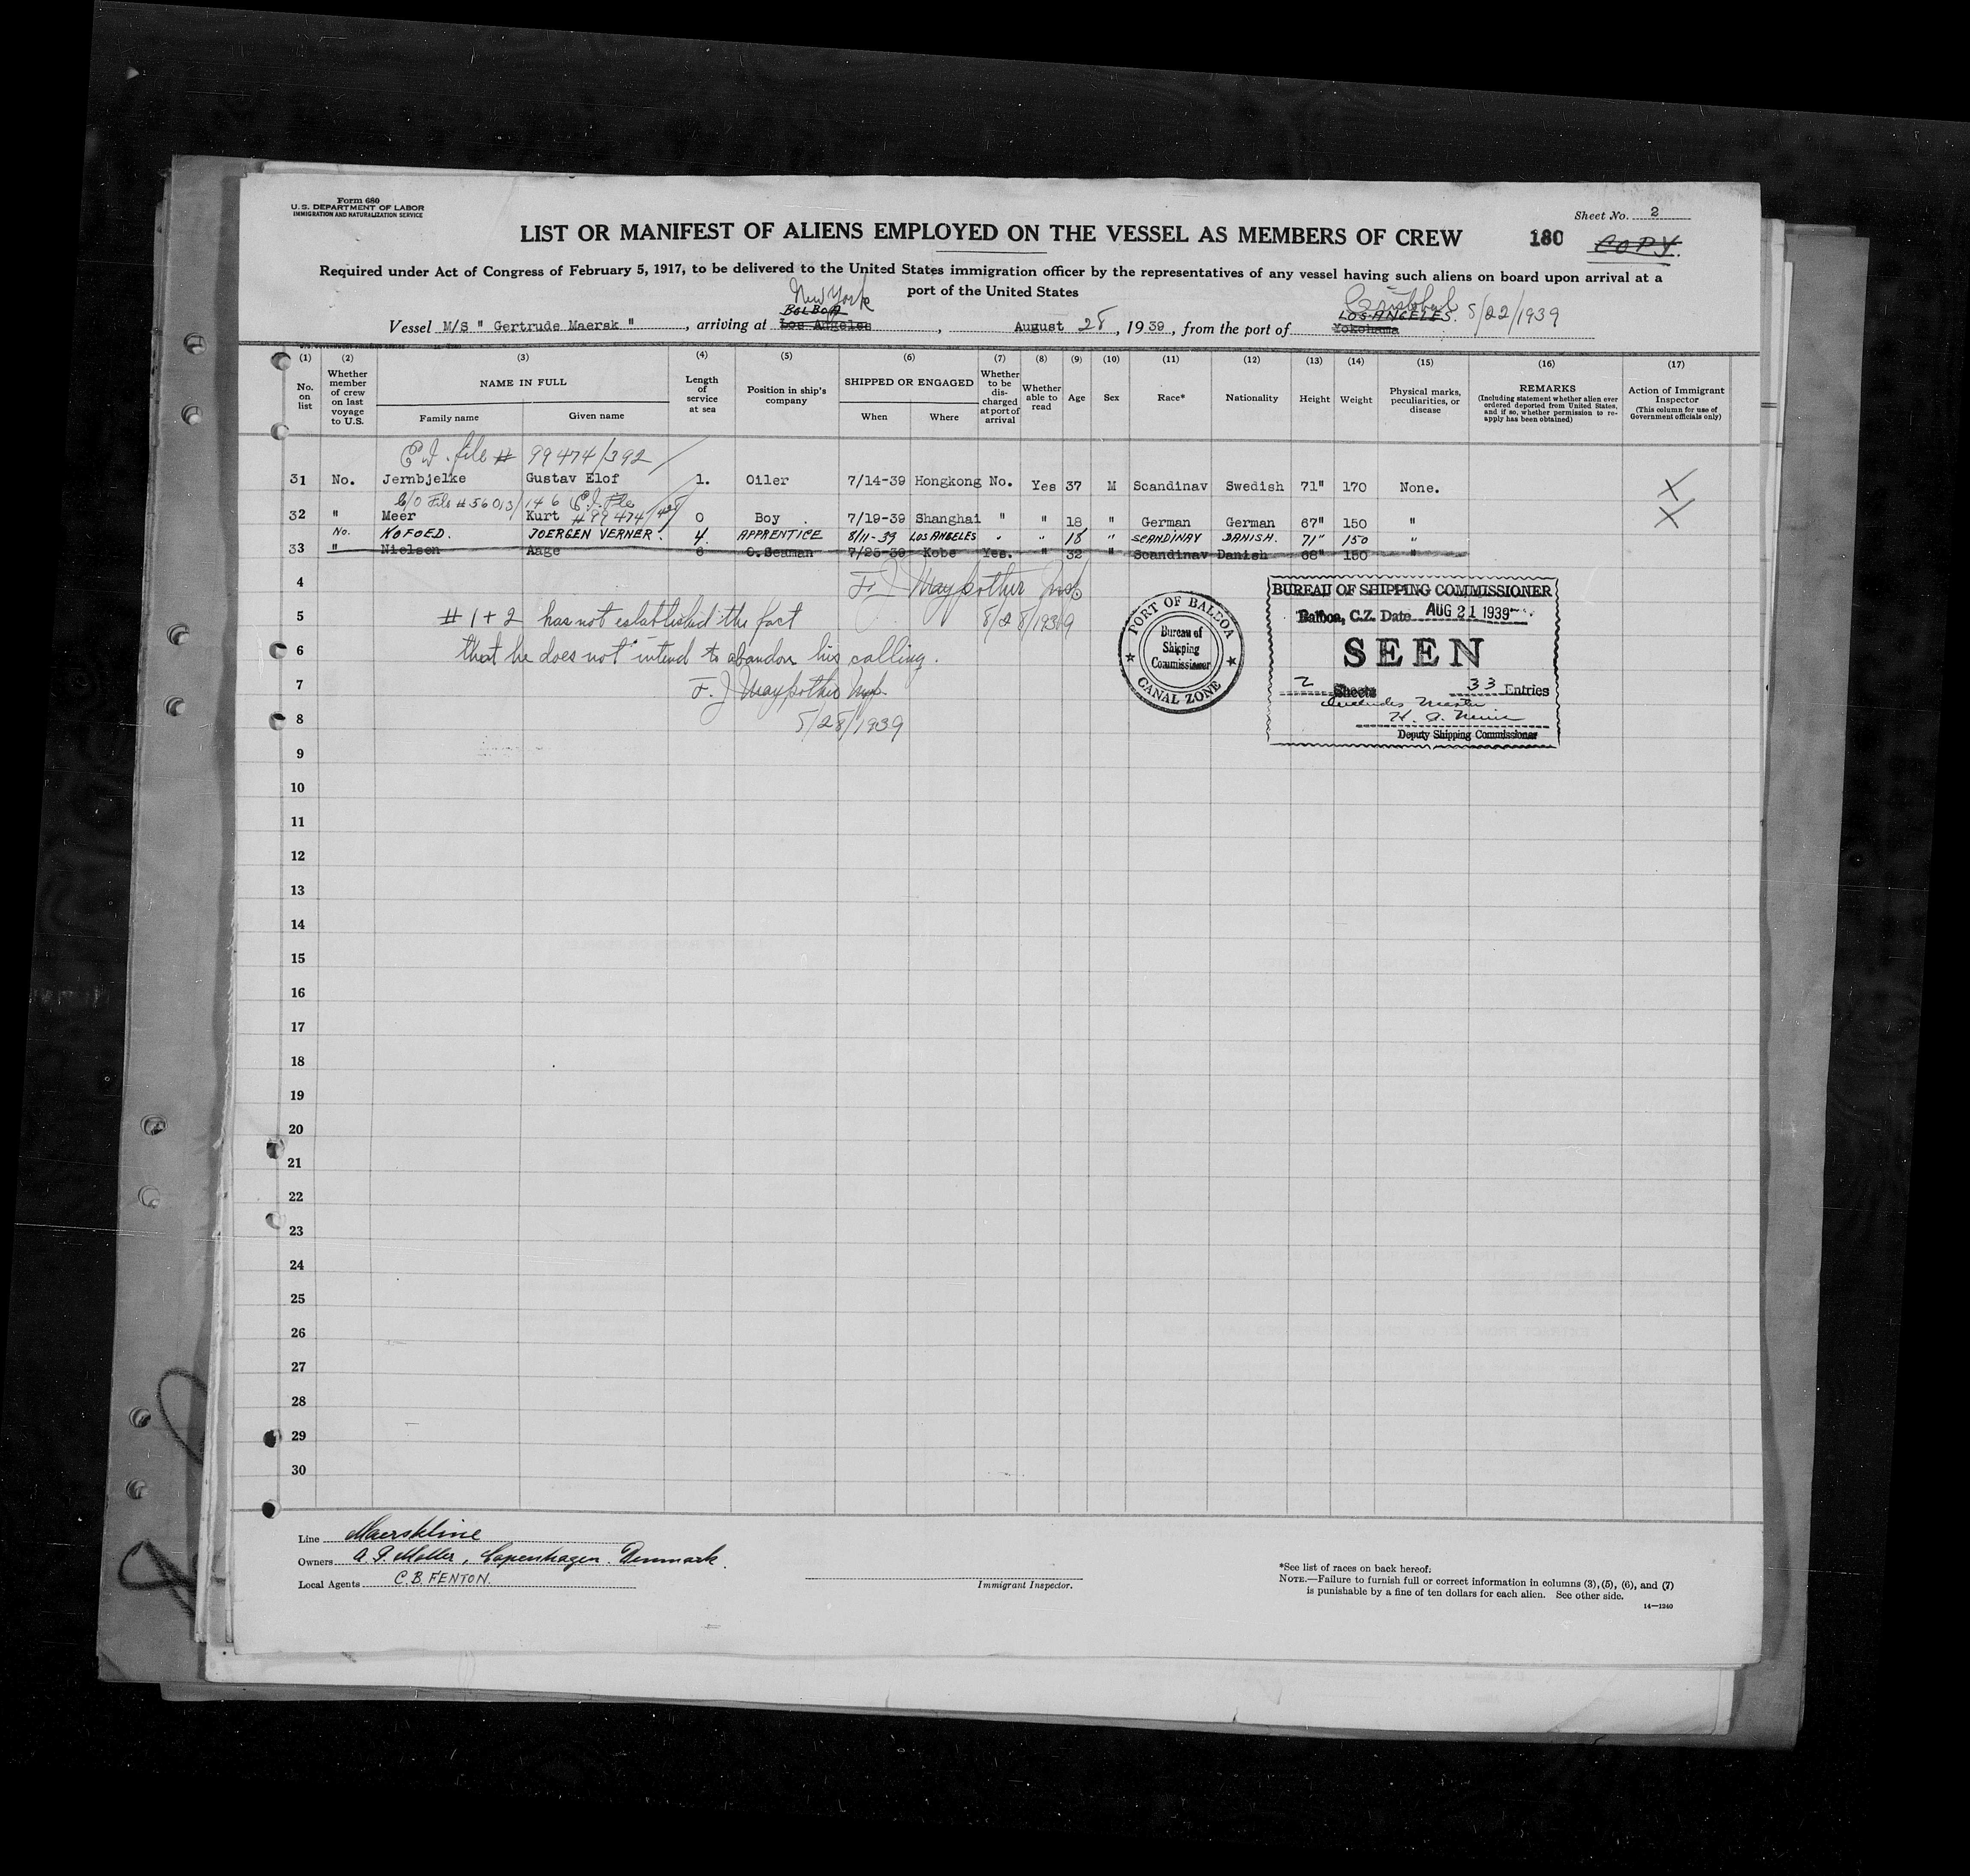 Form 680
U. S. DEPARTMENT OF LABOR
IMMIGRATION AND NATURALIZATION SERVICE
Sheet No. 2
LIST OR MANIFEST OF ALIENS EMPLOYED ON THE VESSEL AS MEMBERS OF CREW
180
COPY.
Required under Act of Congress of February 5, 1917, to be delivered to the United States immigration officer by the representatives of any vessel having such aliens on board upon arrival at a
port of the United States
New York
BALBOA
Cristobal 8/22/1939
LOS ANGELES.
Vessel M/S " Gertrude Maersk ", arriving at Los Angeles, August 28, 1939, from the port of Yokohama
(1) (2) (3) (4) (5) (6) (7) (8) (9) (10) (11) (12) (13) (14) (15) (16) (17)
No. on list
Whether member of crew on last voyage to U.S.
NAME IN FULL
Family name
Given name
Length of service at sea
Position in ship's company
SHIPPED OR ENGAGED
When
Where
Whether to be discharged at port of arrival
Whether able to read
Age
Sex
Race*
Nationality
Height
Weight
Physical marks, peculiarities, or disease
REMARKS
(Including statement whether alien ever ordered deported from United States, and if so, whether permission to reapply has been obtained)
Action of Immigrant Inspector
(This column for use of Government officials only)
E.I. file # 99474/392
31 No. Jernbjelke Gustav Elof 1. Oiler 7/14-39 Hongkong No. Yes 37 M Scandinav Swedish 71" 170 None. X
C/O File # 56013/146 E.I. File
# 99474/428
32 " Meer Kurt 0 Boy 7/19-39 Shanghai " " 18 " German German 67" 150 " X
No. KOFOED. JOERGEN VERNER. 4. APPRENTICE 8/11-39 LOS ANGELES " " 18 " SCANDINAV DANISH. 71" 150 "
33 " Nielsen Aage 6 O.Seaman 7/25-39 Kobe Yes. " 32 " Scandinav Danish 68" 150 "
F. J. Maypother Insp.
8/28/1939
# 1 + 2 has not established the fact
that he does not intend to abandon his calling.
F. J Maypother Insp.
8/28/1939
PORT OF BALBOA
Bureau of
Shipping
Commissioner
CANAL ZONE
BUREAU OF SHIPPING COMMISSIONER
Balboa, C.Z. Date AUG 21 1939
SEEN
2 Sheets 33 Entries
includes Master
Deputy Shipping Commissioner
4
5
6
7
8
9
10
11
12
13
14
15
16
17
18
19
20
21
22
23
24
25
26
27
28
29
30
Line Maerskline
Owners A. P. Moller, Copenhagen. Denmark.
Local Agents C.B. FENTON.
Immigrant Inspector.
*See list of races on back hereof.
NOTE.—Failure to furnish full or correct information in columns (3), (5), (6), and (7)
is punishable by a fine of ten dollars for each alien. See other side.
14—1240